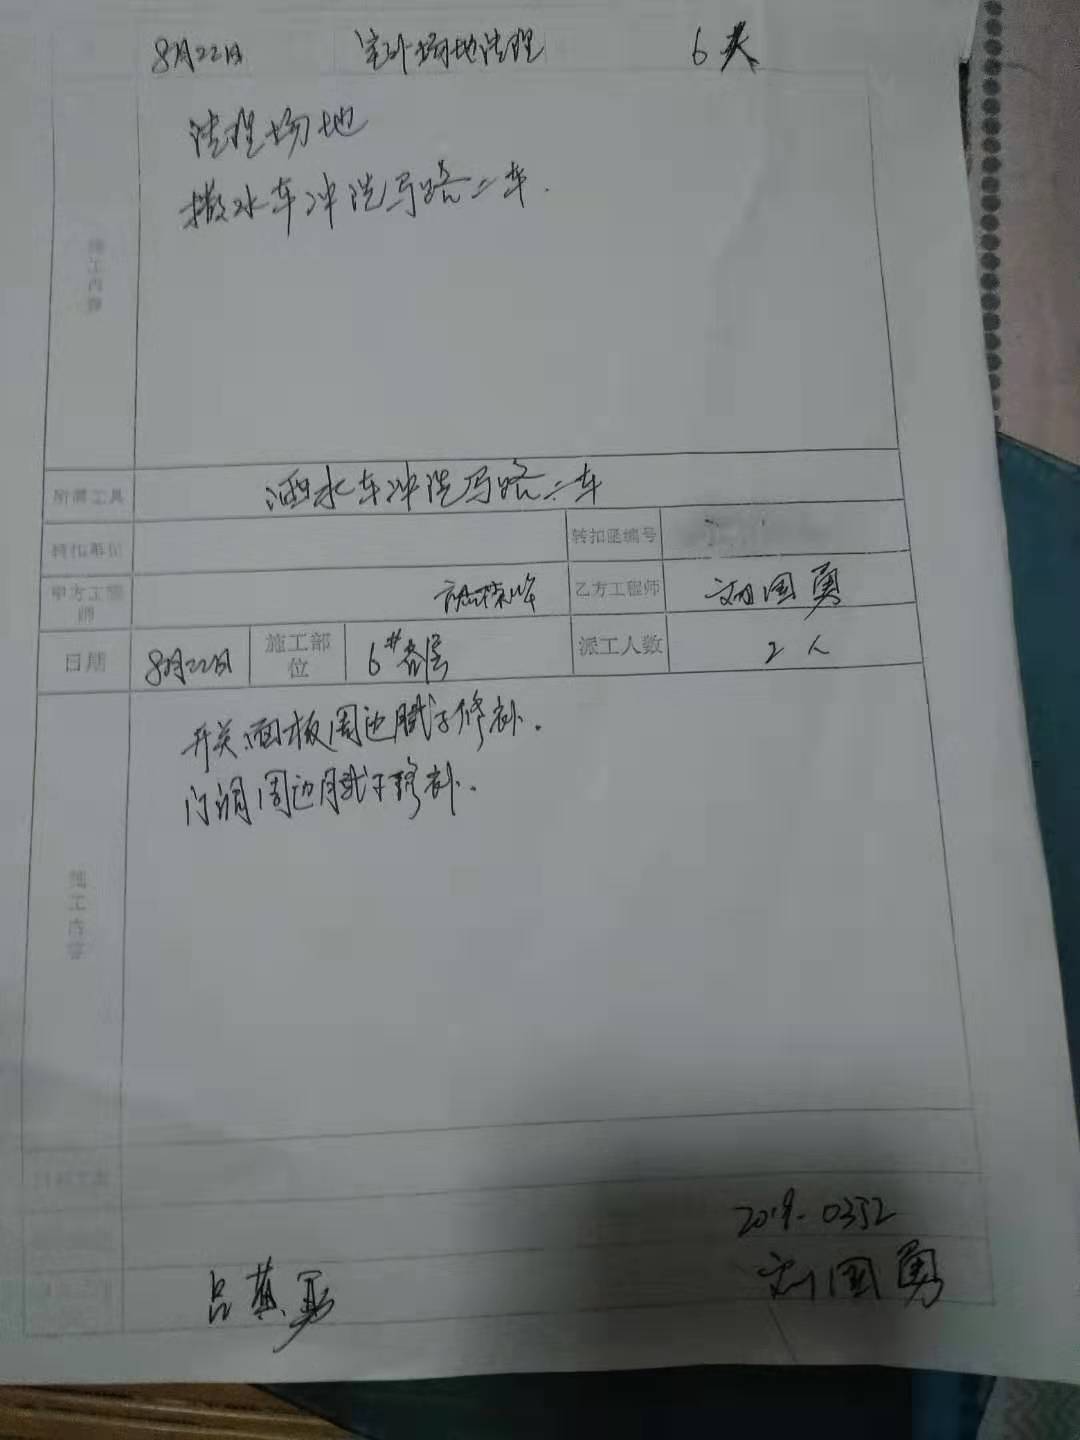 8月22日 室外场地清理 6天
清理场地
撒水车冲洗马路二车.
施工内容
所需工具 洒水车冲洗马路二车
转扣单位 转扣函编号
甲方工程师 乙方工程师 刘国勇
日期 8月22日 施工部位 6#各层 派工人数 2人
开关面板周边腻子修补.
门洞周边腻子修补.
施工内容
2019-0352
刘国勇